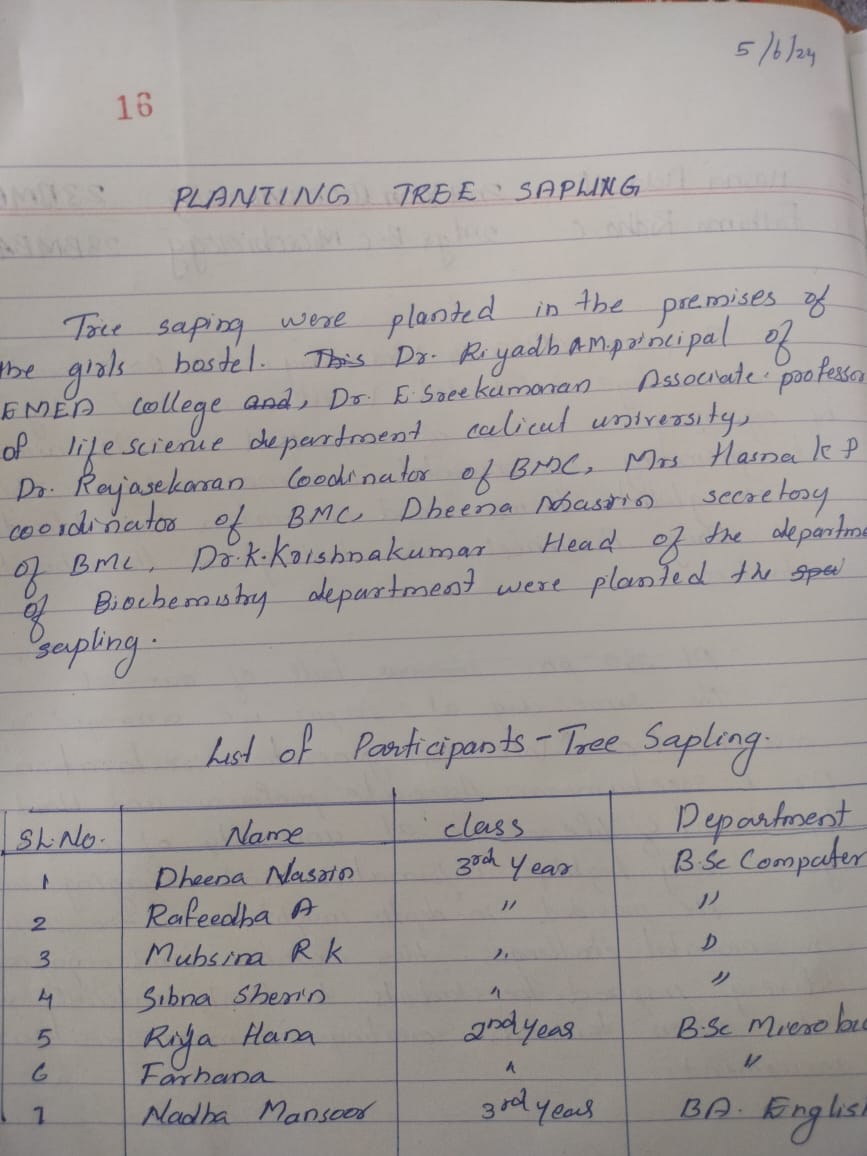 5/6/24
16
PLANTING TREE SAPLING
Tree saping were planted in the premises of
the girls hostel. This Dr. Riyadh AM.principal of
EMEA college and, Dr. E. Sreekumaran Associate. professor
of life science department calicut university,
Dr. Rajasekaran Coodinator of BMC, Mrs Hasna k P
coordinator of BMC, Dheena Nasrin secretory
of BMC, Dr.K.Krishnakumar Head of the departme
of Biochemistry department were planted the
sapling.
List of Participants - Tree Sapling.
SL.No. Name class Department
1 Dheena Nasrin 3rd Year B.Sc Computer
2 Rafeedha A " "
3 Muhsina R K " "
4 Sibna Sherin " "
5 Riya Hana 2nd year B.Sc Microbio
6 Farhana " "
7 Nadha Mansoor 3rd year BA. English